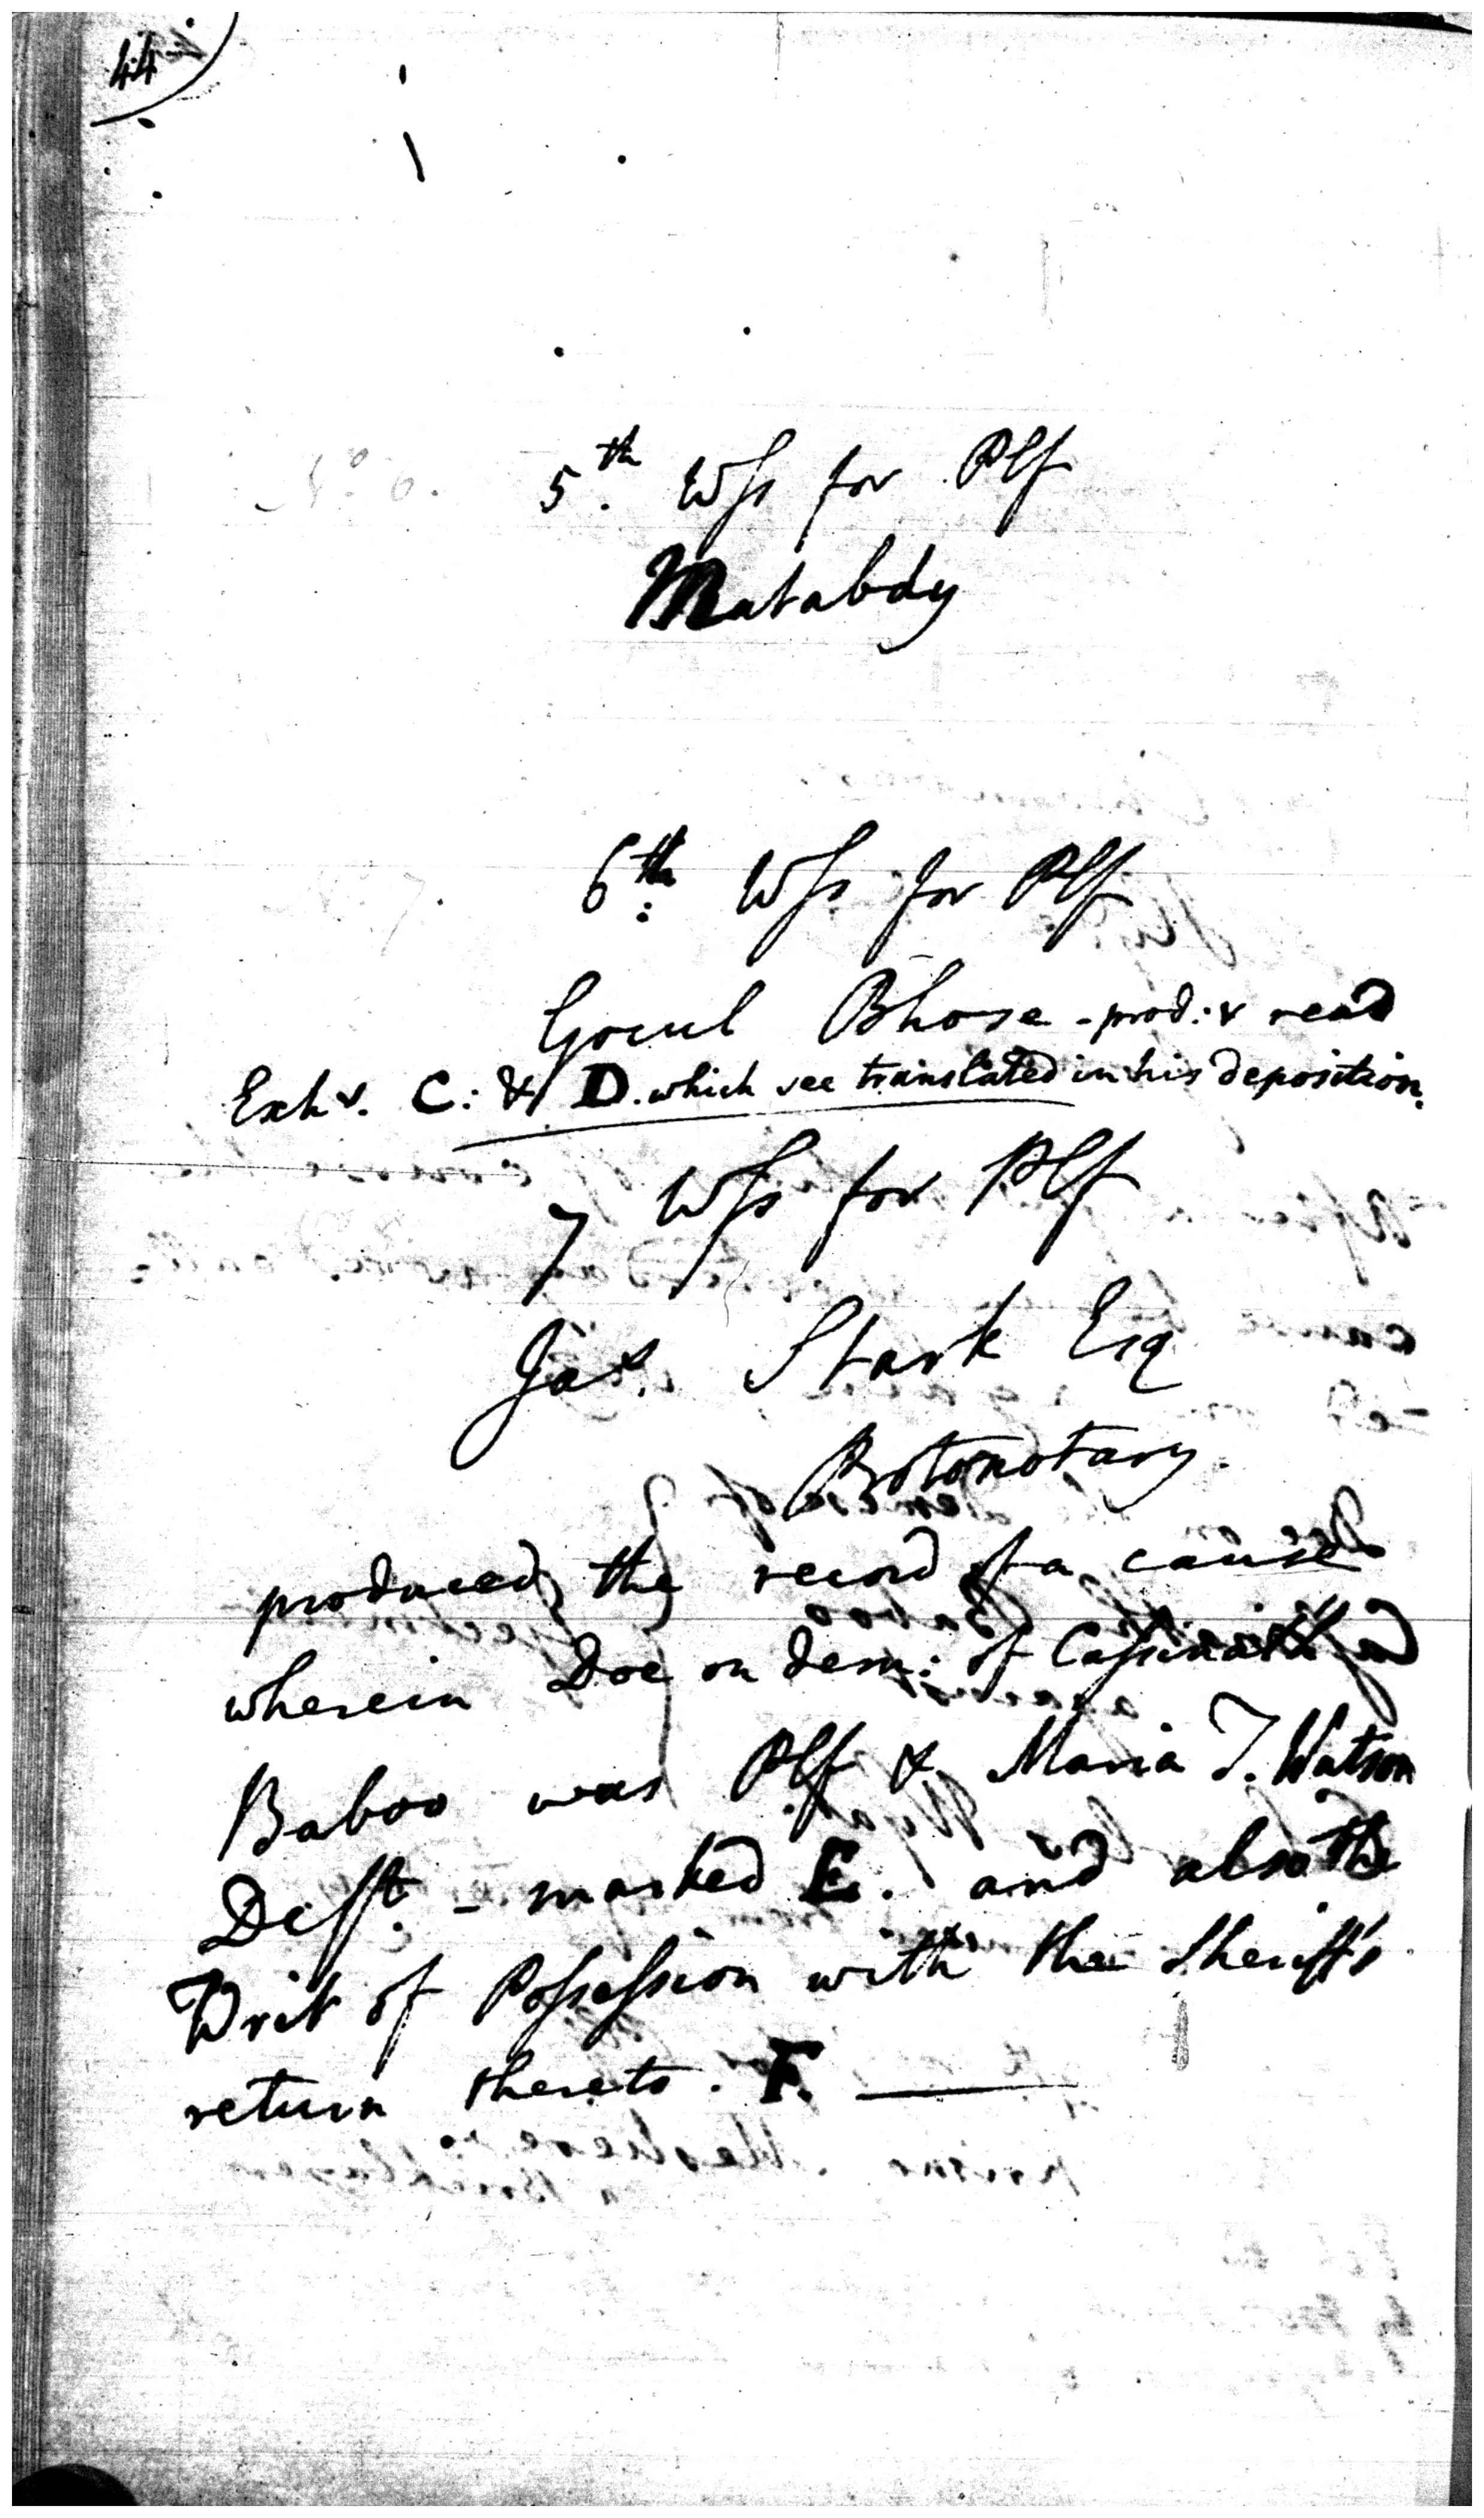 44
5th. Wss for Plf
Matabdy
6th: Wss for Plf
Gocul Bhose - prod: & read
Exhs. C: & D. which see translated in his deposition.
7 Wss for Plf
Jas. Stark Esq
Protonotary.
produced the record of a cause
wherein Doe on dem: of Cassinauth
Baboo was Plf & Maria T. Watson
Defft. - marked E. and also the
Writ of Possession with the Sheriff's
return thereto. F.